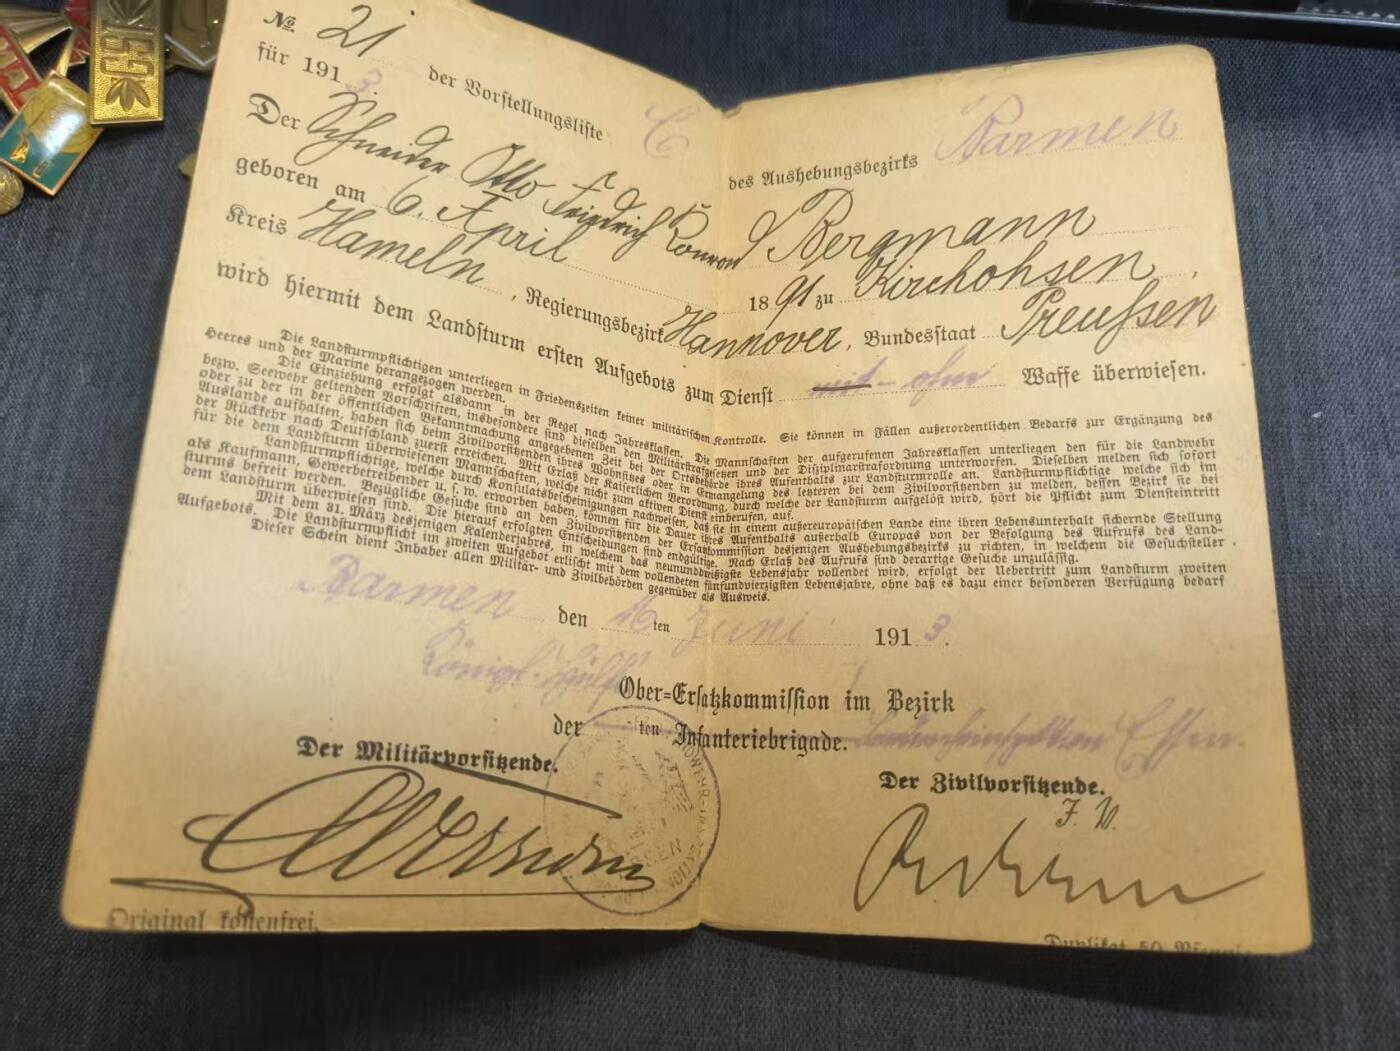 No. 21 der Vorstellungsliste C des Aushebungsbezirks Barmen
für 1913.
Der Schneider Otto Friedrich Konrad Bergmann
geboren am 6. April 1891 zu Kirchohsen,
Kreis Hameln, Regierungsbezirk Hannover, Bundesstaat Preußen
wird hiermit dem Landsturm ersten Aufgebots zum Dienst mit - ohne Waffe überwiesen.
Die Landsturmpflichtigen unterliegen in Friedenszeiten keiner militärischen Kontrolle. Sie können in Fällen außerordentlichen Bedarfs zur Ergänzung des
Heeres und der Marine herangezogen werden.
Die Einziehung erfolgt alsdann in der Regel nach Jahresklassen. Die Mannschaften der aufgerufenen Jahresklassen unterliegen den für die Landwehr
bezw. Seewehr geltenden Vorschriften, insbesondere sind dieselben den Militärstrafgesetzen und der Disziplinarstrafordnung unterworfen. Dieselben melden sich sofort
oder zu der in der öffentlichen Bekanntmachung angegebenen Zeit bei der Ortsbehörde ihres Aufenthalts zur Landsturmrolle an. Landsturmpflichtige welche sich im
Auslande aufhalten, haben sich beim Zivilvorsitzenden ihres Wohnsitzes oder in Ermangelung des letzteren bei dem Zivilvorsitzenden zu melden, dessen Bezirk sie bei
der Rückkehr nach Deutschland zuerst erreichen. Mit Erlaß der Kaiserlichen Verordnung, durch welche der Landsturm aufgelöst wird, hört die Pflicht zum Diensteintritt
für die dem Landsturm überwiesenen Mannschaften, welche nicht zum aktiven Dienst einberufen, auf.
Landsturmpflichtige, welche durch Konsulatsbescheinigungen nachweisen, daß sie in einem außereuropäischen Lande eine ihren Lebensunterhalt sichernde Stellung
als Kaufmann, Gewerbetreibender u. s. w. erworben haben, können für die Dauer ihres Aufenthalts außerhalb Europas von der Befolgung des Aufrufs des Land-
sturms befreit werden. Bezügliche Gesuche sind an den Zivilvorsitzenden der Ersatzkommission desjenigen Aushebungsbezirks zu richten, in welchem die Gesuchsteller
dem Landsturm überwiesen sind. Die hierauf erfolgten Entscheidungen sind endgültig. Nach Erlaß des Aufrufs sind derartige Gesuche unzulässig.
Mit dem 31. März desjenigen Kalenderjahres, in welchem das neununddreißigste Lebensjahr vollendet wird, erfolgt der Uebertritt zum Landsturm zweiten
Aufgebots. Die Landsturmpflicht im zweiten Aufgebot erlischt mit dem vollendeten fünfundvierzigsten Lebensjahre, ohne daß es dazu einer besonderen Verfügung bedarf
Dieser Schein dient Inhaber allen Militär- und Zivilbehörden gegenüber als Ausweis.
Barmen den 16ten Juni 1913.
Königl.
Ober-Ersatzkommission im Bezirk
der ten Infanteriebrigade. Essen.
Der Militärvorsitzende.
Der Zivilvorsitzende.
J. V.
Original kostenfrei.
Duplikat 50 Pfennig